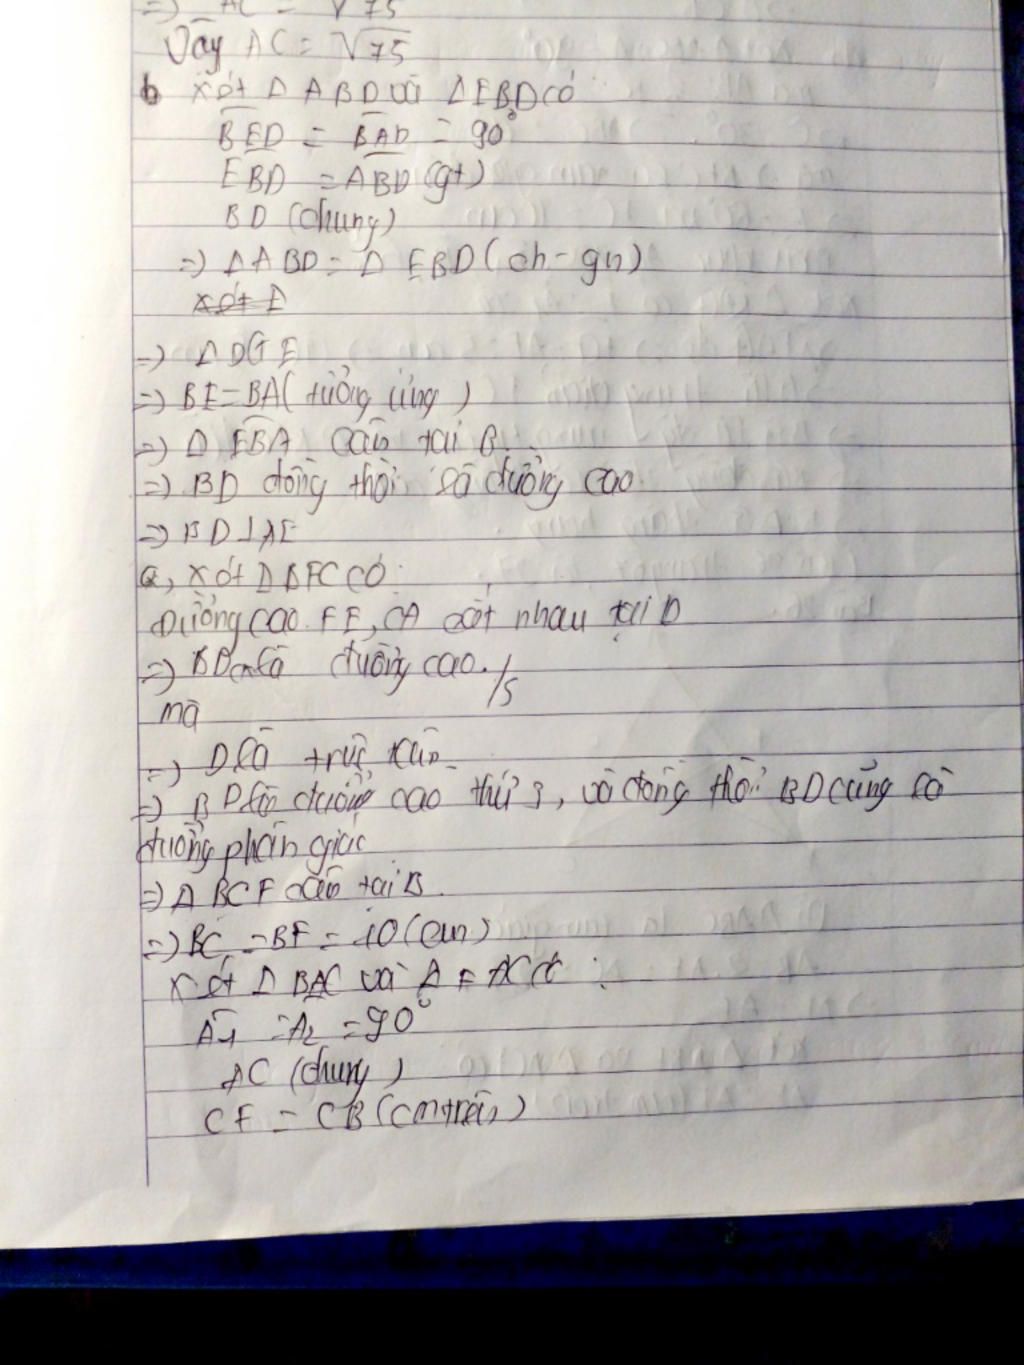 => AC = √75
Vậy AC = √75
b xét Δ ABD và Δ EBD có
BED = BAD = 90°
EBD = ABD (gt)
BD (chung)
=> Δ ABD = Δ EBD (ch - gn)
xét E
=> Δ DGE
=> BE = BA (tưởng ứng)
=> Δ EBA cân tại B
=> BD đồng thời là đường cao
=> BD ⊥ AE
a, xét Δ BFC có
Đường cao FE, CA cắt nhau tại D
=> BD là đường cao. /s
mà
=> D là trực tâm
=> BD là đường cao thứ 3, và đồng thời BD cũng là
đường phân giác
=> Δ BCF cân tại B
=> BC = BF = 10 (cm)
xét Δ BAC và Δ FAC có :
A1 = A2 = 90°
AC (chung)
CF = CB (cm trên)